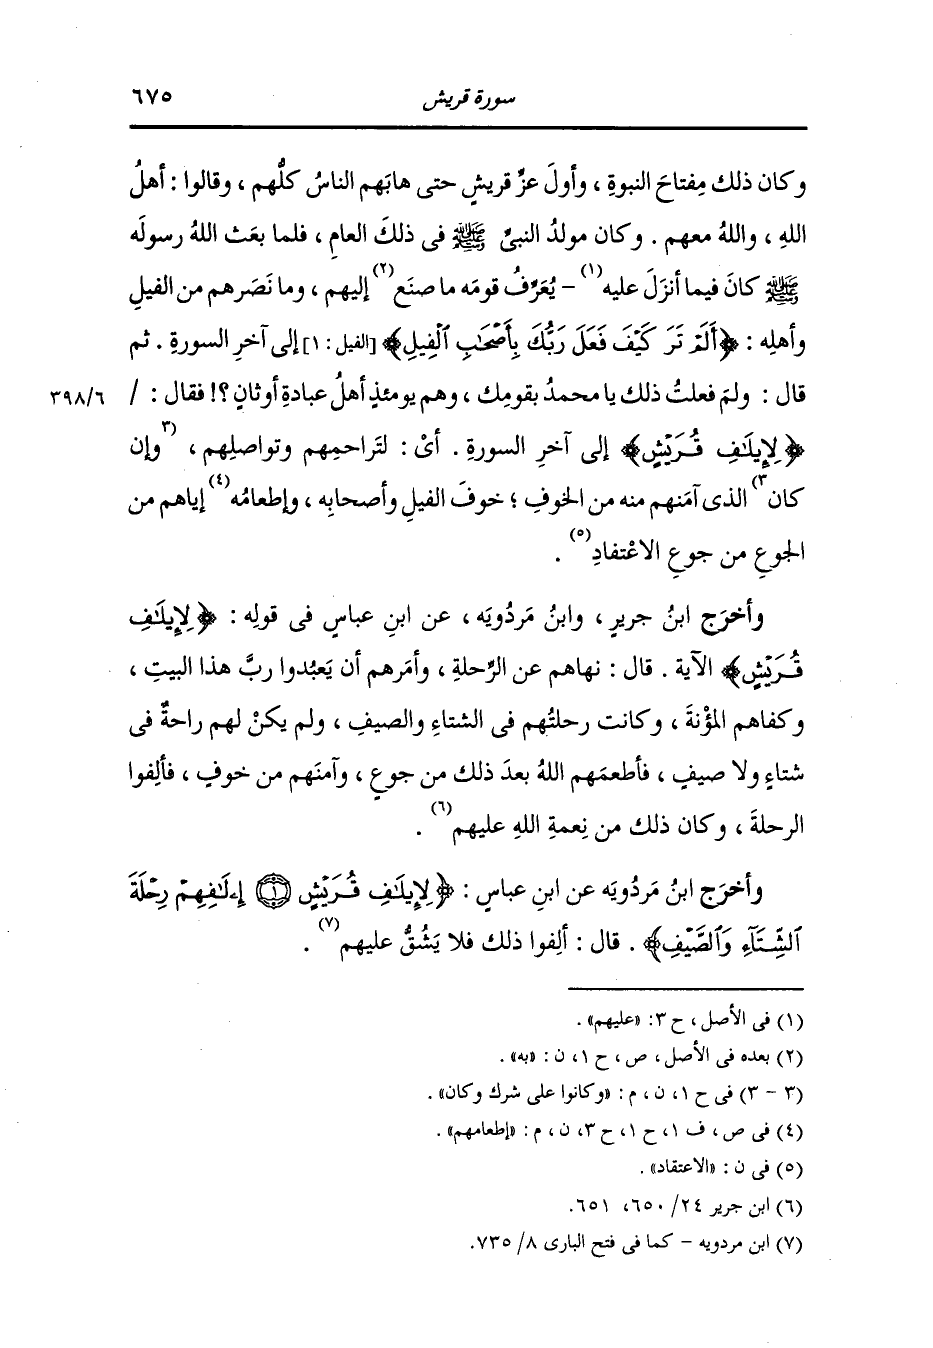 سورة قريش ٦٧٥
وكان ذلك مِفتاحَ النبوةِ ، وأولَ عزِّ قريشٍ حتى هابَهم الناسُ كلُّهم ، وقالوا : أهلُ
اللهِ ، واللهُ معهم . وكان مولدُ النبىِّ ﷺ فى ذلكَ العامِ ، فلما بعَث اللهُ رسولَه
ﷺ كانَ فيما أنزَلَ عليه(١) – يُعَرِّفُ قومَه ما صنَع(٢) إليهم ، وما نَصَرهم من الفيلِ
وأهلِه : ﴿أَلَمْ تَرَ كَيْفَ فَعَلَ رَبُّكَ بِأَصْحَٰبِ ٱلْفِيلِ﴾ [الفيل : ١] إلى آخرِ السورةِ . ثم
قال : ولمَ فعلتُ ذلك يا محمدُ بقومِك ، وهم يومئذٍ أهلُ عبادةِ أوثانٍ ؟! فقال : / ٣٩٨/٦
﴿لِإِيلَٰفِ قُرَيْشٍ﴾ إلى آخرِ السورةِ . أىْ : لتَراحمِهم وتواصلِهم ، (٣وإن
كان٣) الذى آمَنهم منه من الخوفِ ؛ خوفَ الفيلِ وأصحابِه ، وإطعامُه(٤) إياهم من
الجوعِ من جوعِ الاعْتفادِ(٥) .
وأخرَج ابنُ جريرٍ ، وابنُ مَردُويَه ، عن ابنِ عباسٍ فى قولِه : ﴿لِإِيلَٰفِ
قُرَيْشٍ﴾ الآية . قال : نهاهم عن الرِّحلةِ ، وأمَرهم أن يَعبُدوا ربَّ هذا البيتِ ،
وكفاهم المؤْنةَ ، وكانت رحلتُهم فى الشتاءِ والصيفِ ، ولم يكنْ لهم راحةٌ فى
شتاءٍ ولا صيفٍ ، فأطعمَهم اللهُ بعدَ ذلك من جوعٍ ، وآمنَهم من خوفٍ ، فألِفوا
الرحلةَ ، وكان ذلك من نِعمةِ اللهِ عليهم(٦) .
وأخرَج ابنُ مَردُويَه عن ابنِ عباسٍ : ﴿لِإِيلَٰفِ قُرَيْشٍ ۝١ إِۦلَٰفِهِمْ رِحْلَةَ
ٱلشِّتَآءِ وَٱلصَّيْفِ﴾ . قال : ألِفوا ذلك فلا يَشُقُّ عليهم(٧) .
(١) فى الأصل ، ح ٣: «عليهم» .
(٢) بعده فى الأصل ، ص ، ح ١، ن : «به» .
(٣ – ٣) فى ح ١، ن ، م : «وكانوا على شرك وكان» .
(٤) فى ص ، ف ١، ح ١، ح ٣، ن ، م : «إطعامهم» .
(٥) فى ن : «الاعتقاد» .
(٦) ابن جرير ٢٤/ ٦٥٠، ٦٥١.
(٧) ابن مردويه – كما فى فتح البارى ٨/ ٧٣٥.